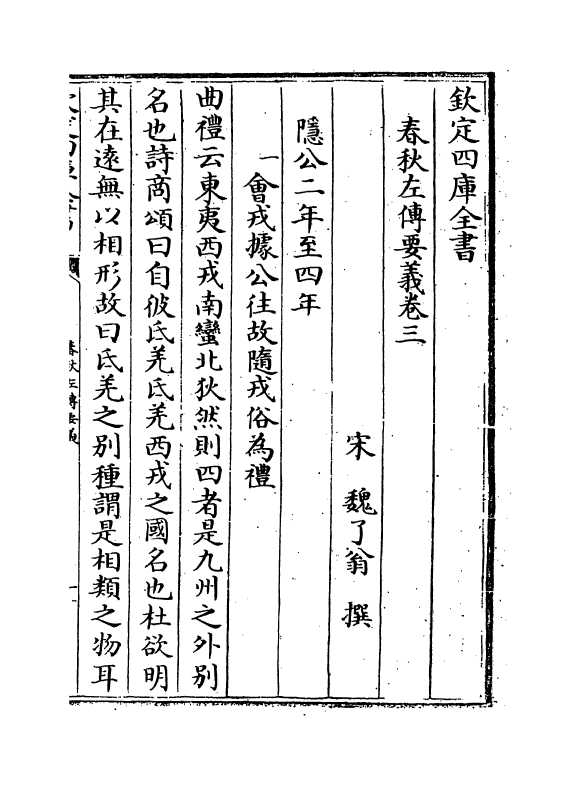 欽定四庫全書
春秋左傳要義卷三
宋 魏了翁 撰
隱公二年至四年
一會戎據公往故隨戎俗為禮
曲禮云東夷西戎南蠻北狄然則四者是九州之外別
名也詩商頌曰自彼氐羌氐羌西戎之國名也杜欲明
其在遠無以相形故曰氐羌之別種謂是相類之物耳
春秋左傳要義
一